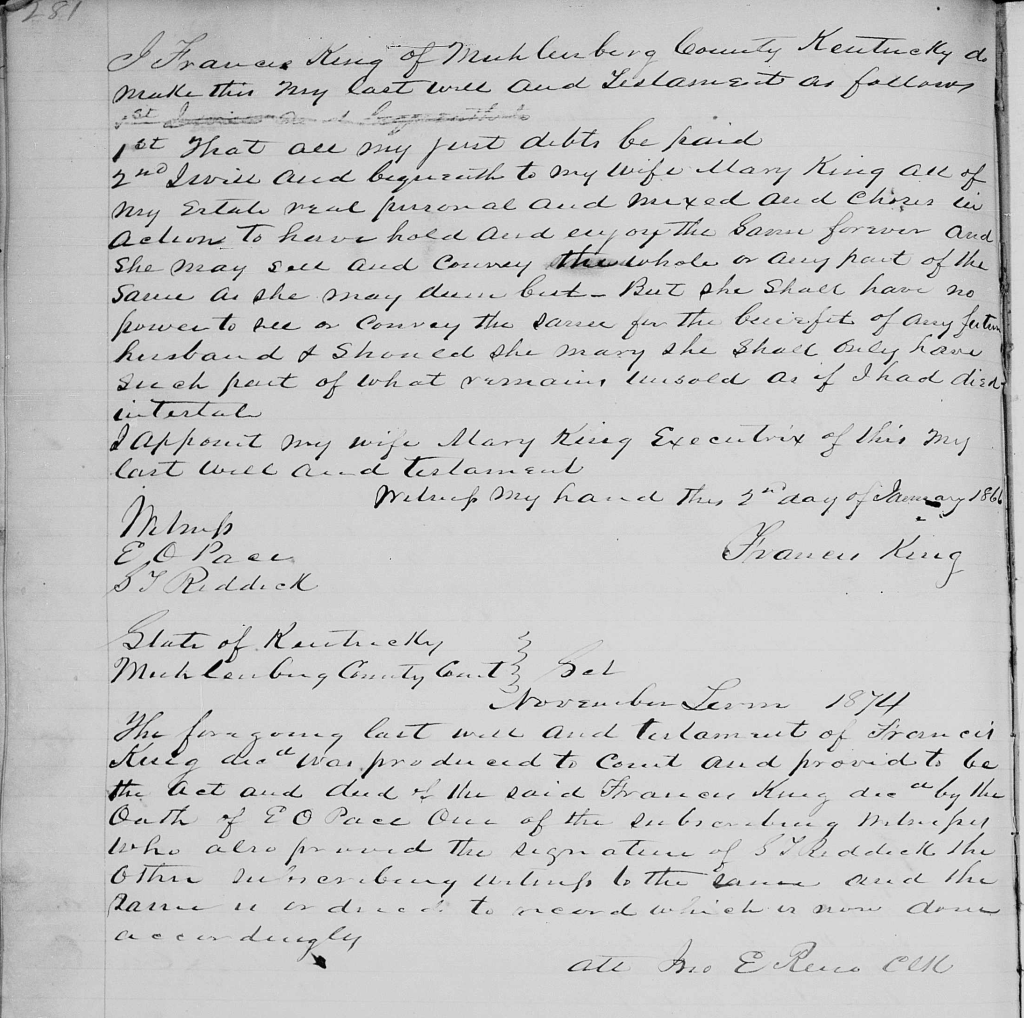 281
I Francis King of Muhlenberg County Kentucky do
make this my last will and Testament as follows
1st
1st That all my just debts be paid
2nd I will and bequeath to my wife Mary King all of
my Estate real personal and mixed and choses in
action to have hold and enjoy the same forever and
she may sell and convey the whole or any part of the
same as she may deem best - But she shall have no
power to sell or convey the same for the benefit of any future
husband & should she mary she shall only have
such part of what remains unsold as if I had died
intestate
I appoint my wife Mary King Executrix of this my
last will and testament
Witness my hand this 2nd day of January 1866
Witness
E O Pace
Francis King
S T Reddick
State of Kentucky
Muhlenburg County Court } Sct
November Term 1874
The foregoing last will and testament of Francis
King decd was produced to Court and provid to be
the act and deed of the said Francis King decd by the
Oath of E O Pace One of the subscribing witnesses
who also proved the signature of S T Reddick the
other subscribing witness to the same and the
same is ordered to record which is now done
accordingly
att Jno E Reno Clk